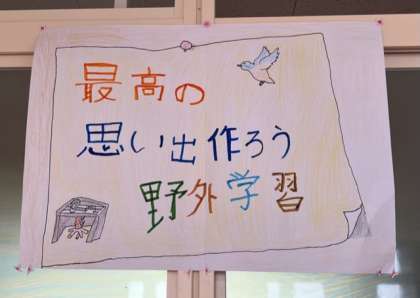 最高の
思い出作ろう
野外学習